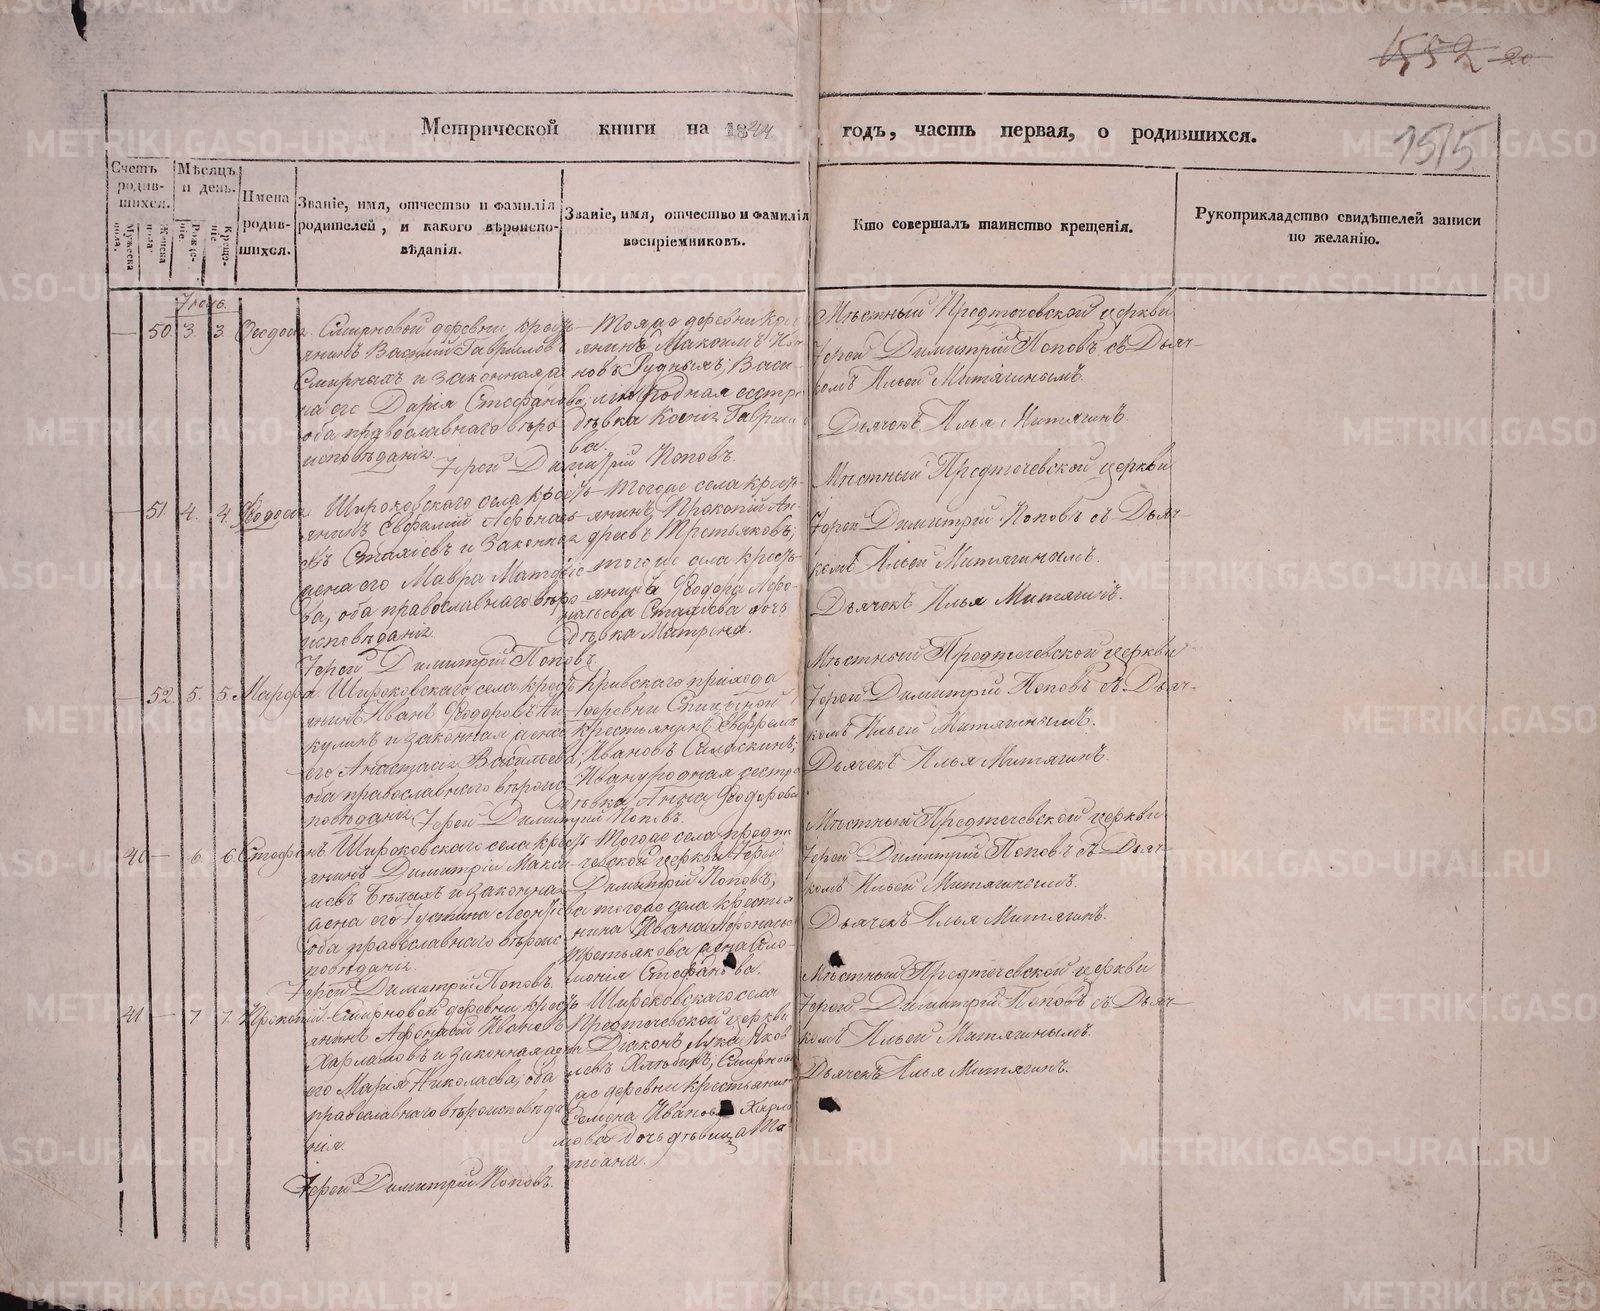 552 20
Метрической книги на 1844 годъ, часть первая, о родившихся.
1515
Счетъ родив-шихся.
Мужеска пола.
Женска пола.
Мѣсяцъ и день.
Рожде-ніе.
Креще-ніе.
Имена родив-шихся.
Званіе, имя, отчество и фамилія родителей, и какого вѣроиспо-вѣданія.
Званіе, имя, отчество и фамилія воспріемниковъ.
Кто совершалъ таинство крещенія.
Рукоприкладство свидѣтелей записи по желанію.
50 3. 3.
Смирновой деревни крестъ-
янинъ Василій Гавриловъ
Смирныхъ и законная
на его Дарія Стефанова,
оба православнаго вѣро
исповѣданія.
Іерей Димитрій Поповъ.
Тояже деревни
янинъ Максимъ
новъ Рудныхъ, Васи-
родная сестра
дѣвка Гаврило
ва.
Мѣстный Предтечевской церкви
Іерей Димитрій Поповъ съ Дьяч-
комъ Ильей Митягинымъ.
Дьячекъ Илья Митягинъ.
51 4. 4. Феодосія
Широковскаго села крестъ-
янинъ Евфимій Афонась-
евъ и законная
жена его Мавра Матфіе-
ва, оба православнаго вѣро
исповѣданія.
Іерей Димитрій Поповъ.
Тогоже села кресть-
янинъ Прокопій Ан-
дреевъ Третьяковъ;
тогоже села кресть-
янина Феодора Афо-
насьева дочь
дѣвка Матрена.
Мѣстный Предтечевской церкви
Іерей Димитрій Поповъ съ Дьяч-
комъ Ильей Митягинымъ.
Дьячекъ Илья Митягинъ.
52 5. 5. Марфа
Широковскаго села кресть-
янинъ Иванъ Феодоровъ Ан-
кулинъ и законная жена
его Анастасія Васильева,
оба православнаго вѣроис-
повѣданія.
Іерей Димитрій Поповъ.
Кривскаго прихода
деревни
крестьянинъ Евфремъ
Ивановъ
Ивану родная сестра
дѣвка Анна Феодорова.
Мѣстный Предтечевской церкви
Іерей Димитрій Поповъ съ Дьяч-
комъ Ильей Митягинымъ.
Дьячекъ Илья Митягинъ.
40 6. 6. Стефанъ
Широковскаго села кресть-
янинъ Димитрій Макси-
мовъ Бѣлыхъ и законная
жена его Іустина Леонтіева
оба православнаго вѣроис-
повѣданія.
Іерей Димитрій Поповъ.
Тогоже села Предте-
чевской церкви Іерей
Димитрій Поповъ;
тогоже села крестья
нина Ивана Афонасьева
Третьякова жена Соло-
монія Стефанова.
Мѣстный Предтечевской церкви
Іерей Димитрій Поповъ съ Дьяч-
комъ Ильей Митягинымъ.
Дьячекъ Илья Митягинъ.
41 7. 7. Прокопій
Смирновой деревни кресть-
янинъ Афонасій Ивановъ
Харламовъ и законная жена
его Марія Николаева, оба
православнаго вѣроисповѣда
нія.
Іерей Димитрій Поповъ.
Широковскаго села
Предтечевской церкви
Діаконъ Лука Яков
левъ Хлѣбинъ, Смирновой
же деревни крестьянина
Семена Иванова Харла
мова дочь дѣвица Та-
тіана.
Мѣстный Предтечевской церкви
Іерей Димитрій Поповъ съ Дьяч-
комъ Ильей Митягинымъ.
Дьячекъ Илья Митягинъ.
METRIKI.GASO-URAL.RU